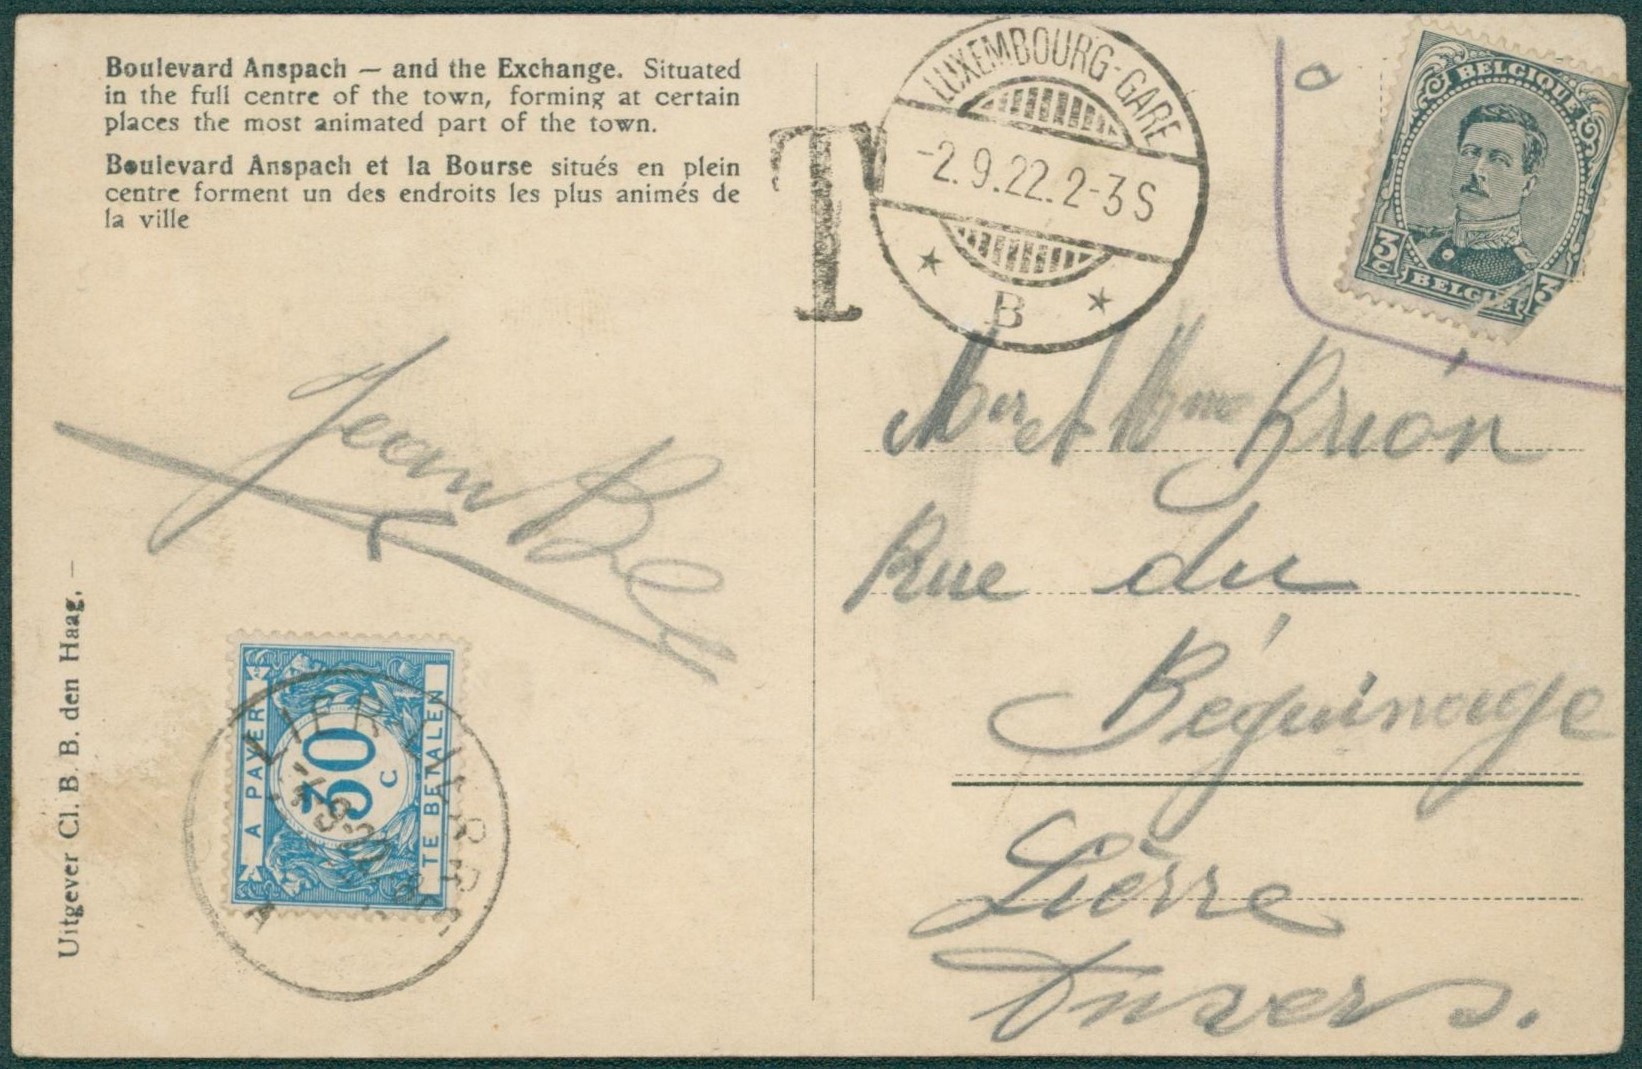 Boulevard Anspach — and the Exchange. Situated
in the full centre of the town, forming at certain
places the most animated part of the town.
Boulevard Anspach et la Bourse situés en plein
centre forment un des endroits les plus animés de
la ville
T
LUXEMBOURG-GARE
-2.9.22.2-3S
B
BELGIQUE
3c
3
BELGIË
Jean
Mr et Mme Brion
Rue du
Béguinage
Lierre
Anvers.
Uitgever Cl. B. B. den Haag. —
A PAYER
30 c
TE BETALEN
LIER
LIERRE
A